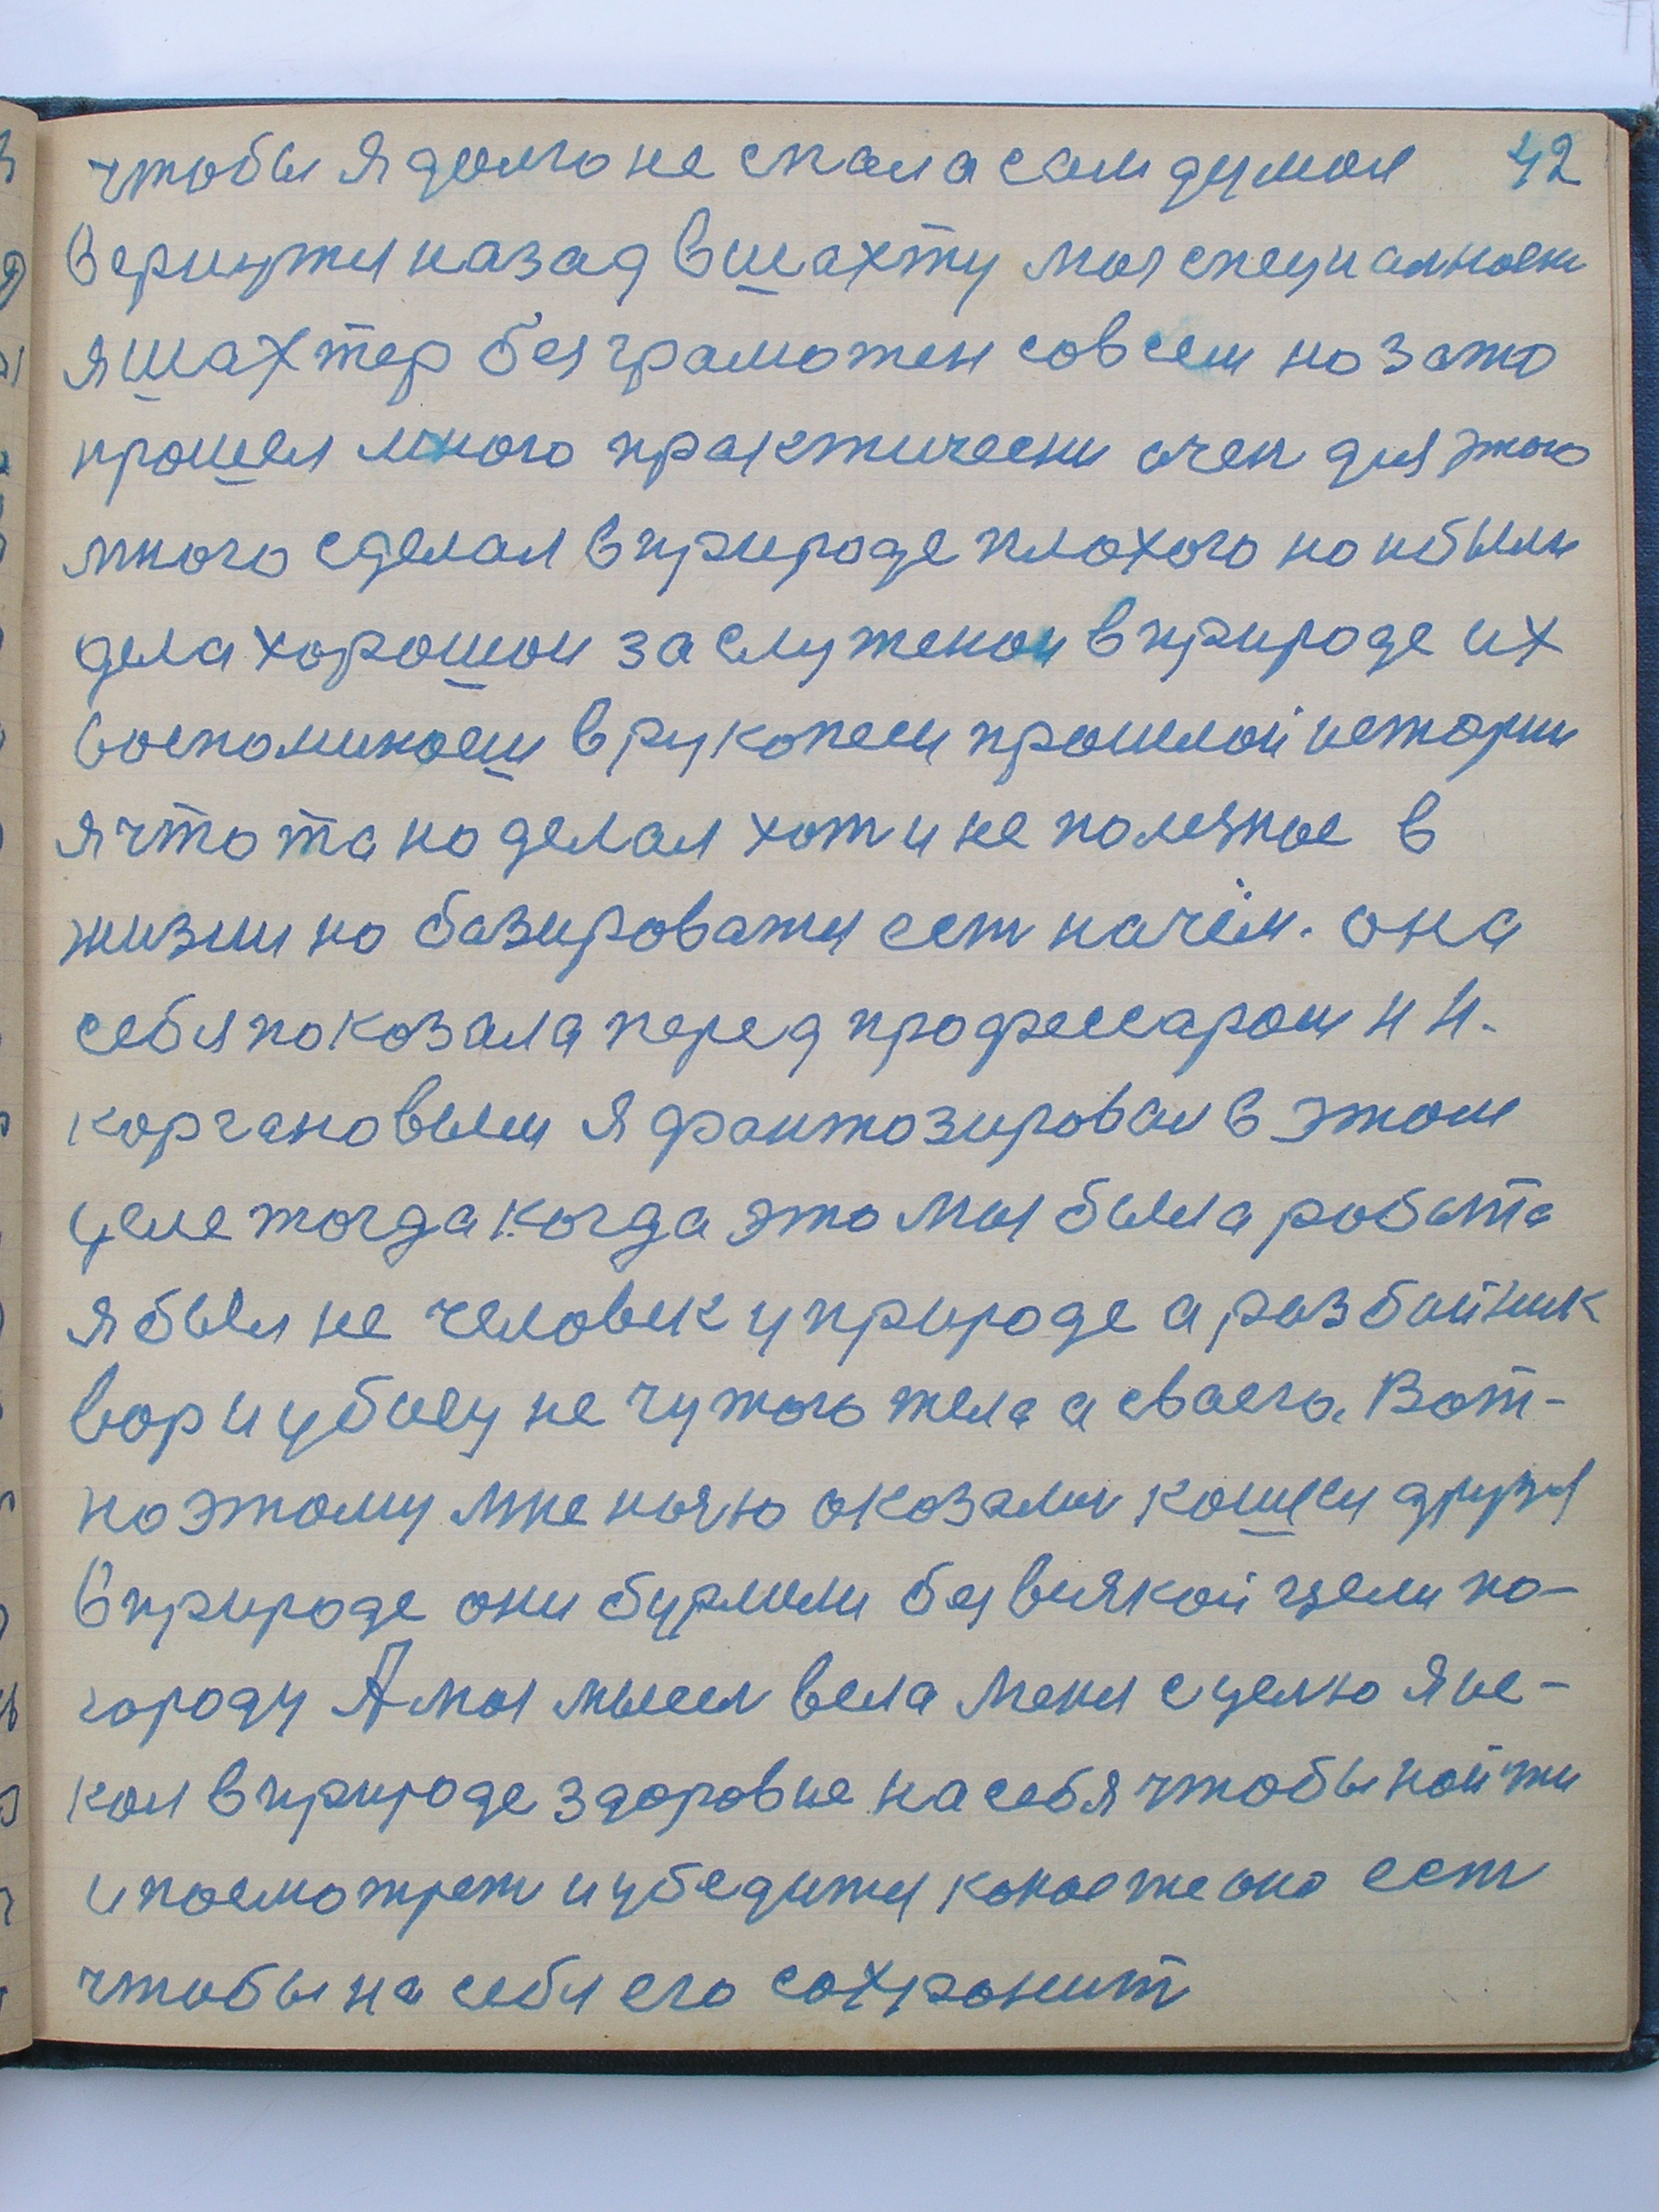 чтобы я долго не спал а сам думал 42
вернутся назад в шахту моя специалност
я шахтер безграмотен совсем но зато
прошел много практически очен для этого
много сделал в природе плохого но и были
дела хорошои заслуженои в природе их
воспоминаеш в рукописи прошлой истории
я что то но делал хоти и не полезное в
жизни но базироватся ест на чём. она
себя показала перед профессаром Н Н.
Корганровым я фантозировал в этом
целе тогда когда это моя была робота
я был не человек у природе а разбойник
вор и убицу не чужого тела а сваего. Вот-
поэтому мне ночю оказалис кошки друзя
в природе они бурлили без всякой цели по-
городу А моя мысел вела меня с целю я ис-
кал в природе здоровие на себя чтобы найти
и посмотрет и убедится каковоже оно ест
чтобы на себя его сохранит